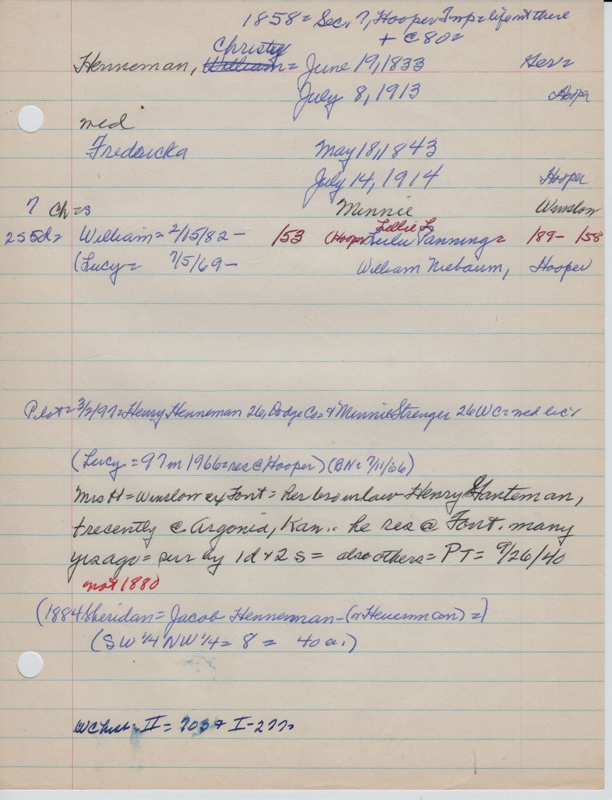 1858 = Sec. 7, Hooper Twp = life mt there
+ C 80 =
Christy
Henneman, William = June 19, 1833 Ger =
July 8, 1913 Hooper
med
Fredericka May 18, 1843
July 14, 1914 Hooper
7 ch = s Minnie Winslow
Lillie L
2 s 5 d = William = 2/15/82 - /53 (Hooper Lulu Panning = /89 - /58
(Lucy = 7/5/69 - William Niebaum, Hooper
Pilot = 3/2/97 = Henry Henneman 26, Dodge Co = & Minnie Strenger 26 WC = med lic
(Lucy = 97 in 1966 = res @ Hooper) (BN = 7/11/66)
Mrs H = Winslow ex Font = her bro inlaw Henry Ganteman,
+ recently @ Argonia, Kan .. he res @ Font. many
yrs ago = sur by 1 d + 2 s = also others = PT = 9/26/40
not 1880
(1884 Sheridan = Jacob Henneman - (or Heuermann) =)
(SW 1/4 NW 1/4 = 8 = 40 a.)
WC hist. II = 703 & I - 277